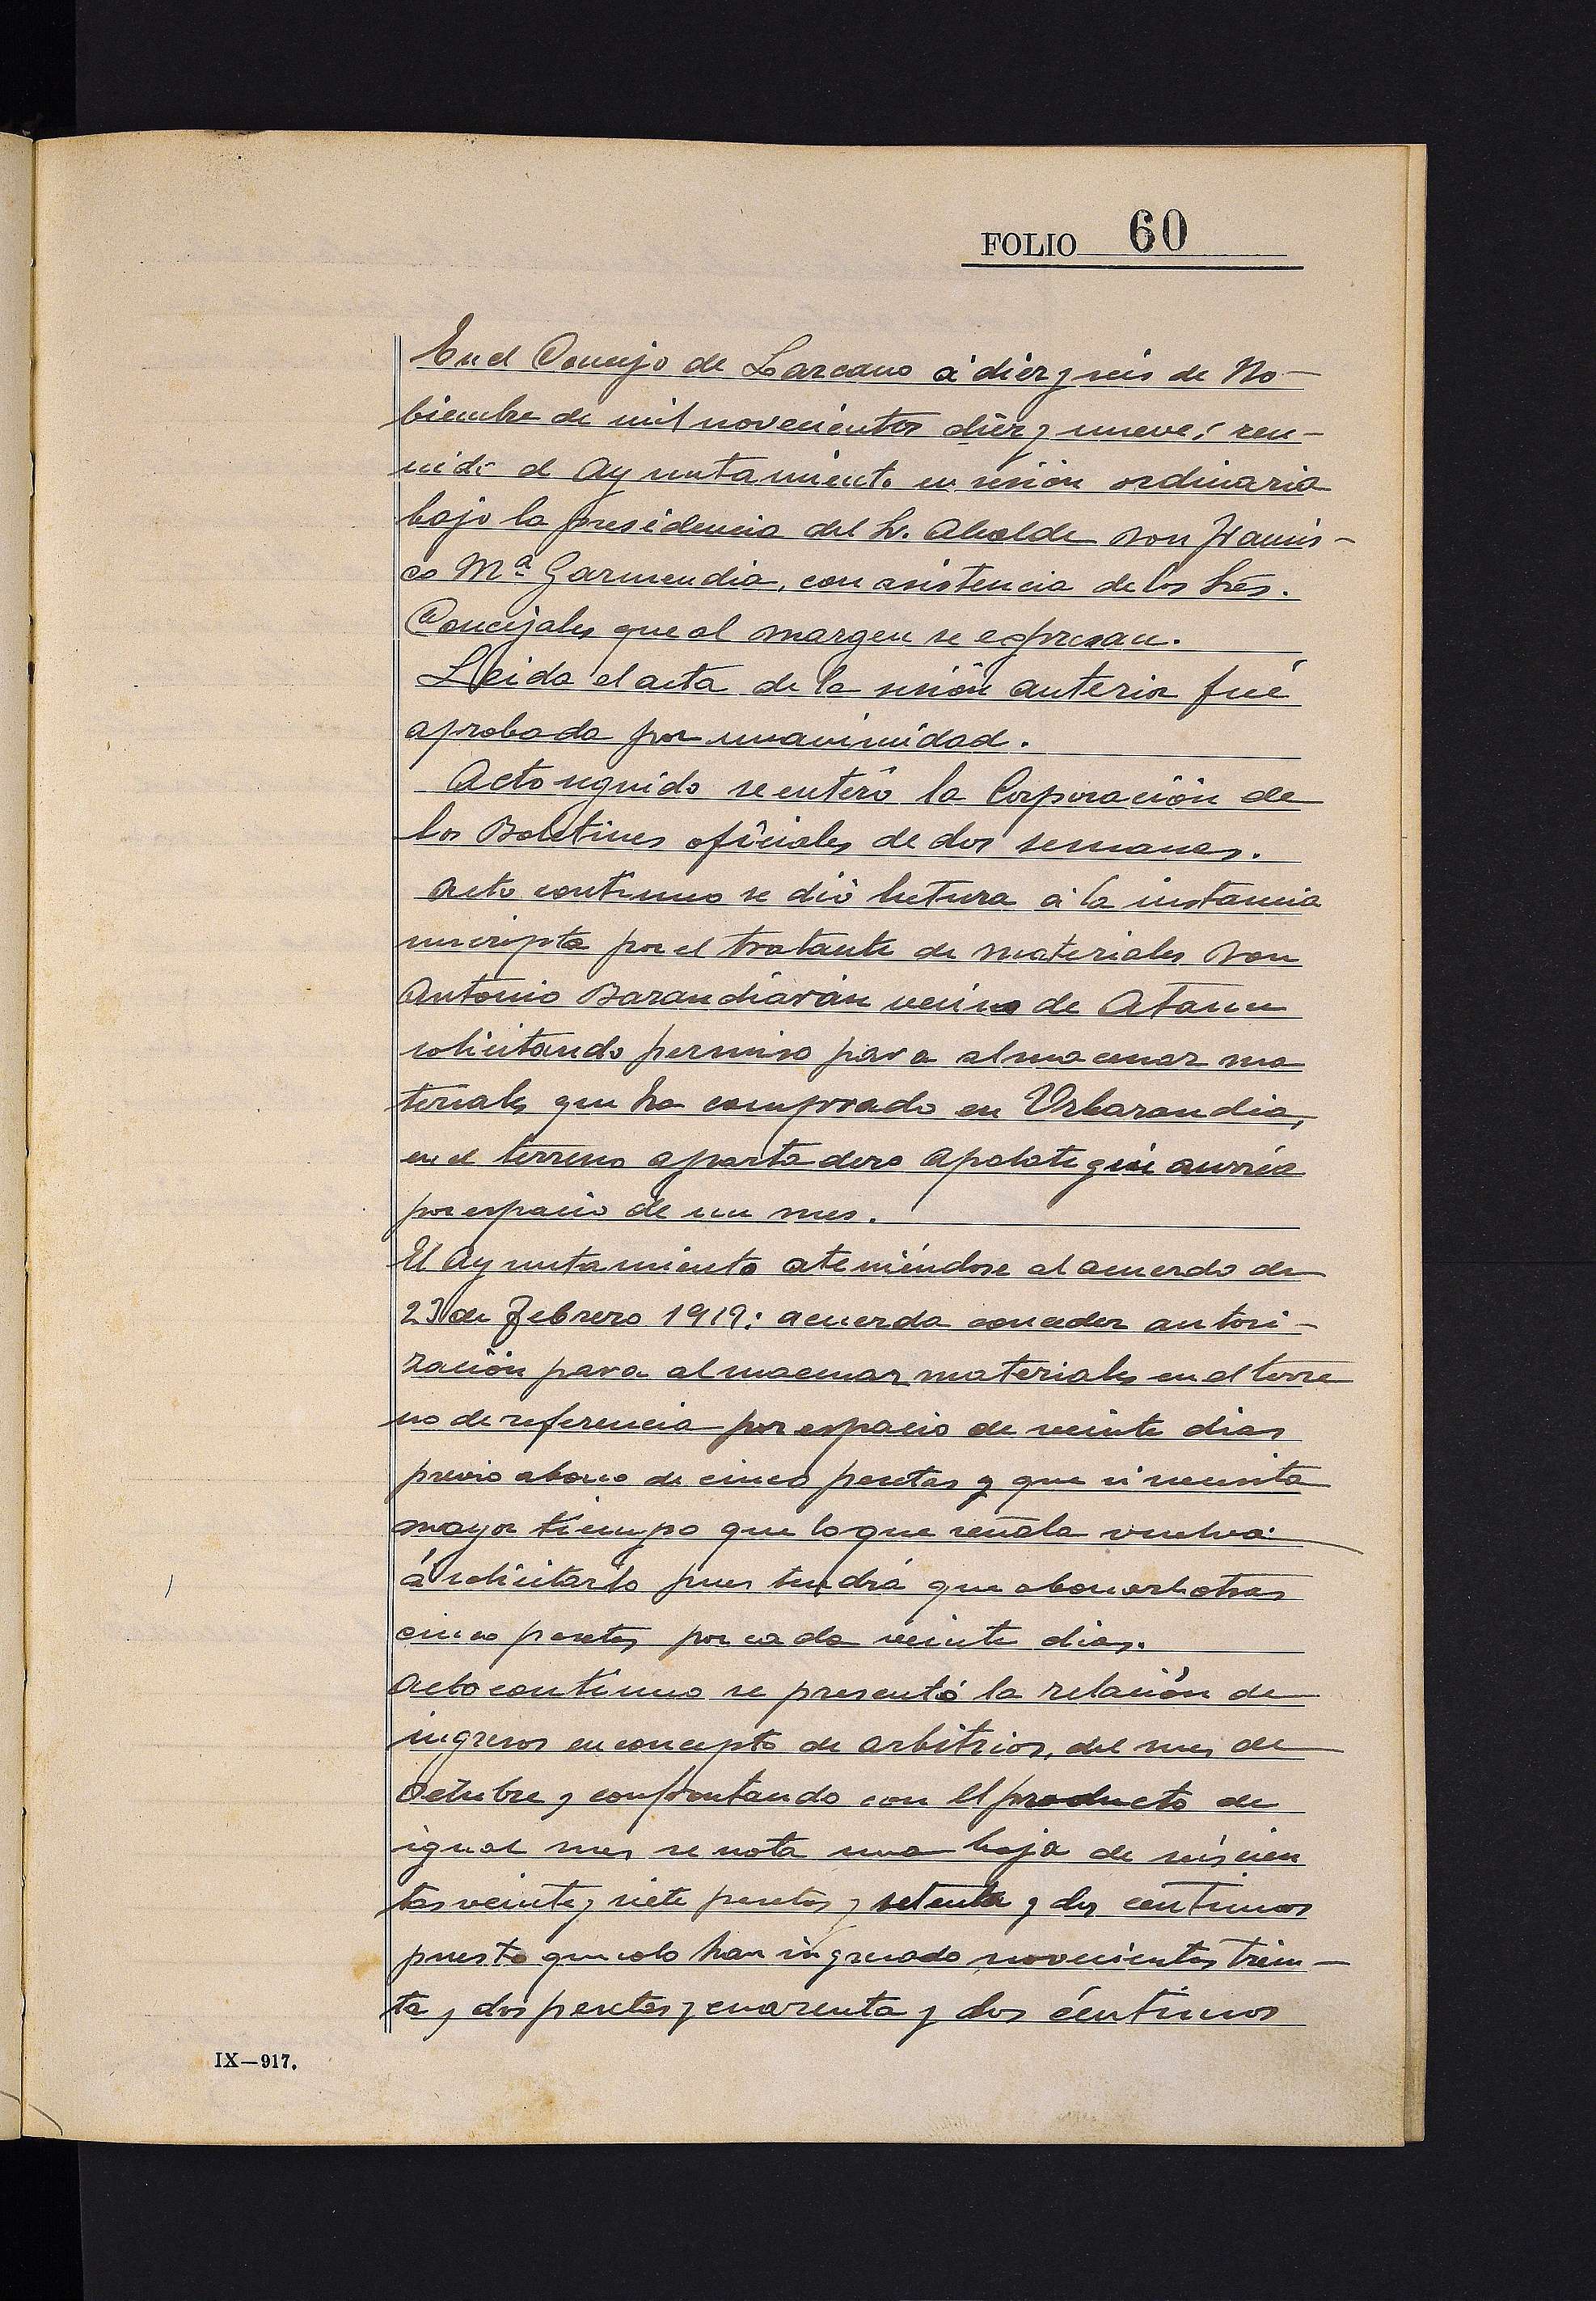 FOLIO 60
En el Concejo de Lazcano á diez y seis de No-
biembre de mil novecientos diez y nueve: reu-
nido el Ayuntamiento en sesión ordinaria
bajo la presidencia del Sr. Alcalde Don Francis-
co Mª Garmendia, con asistencia de los Sres.
Concejales que al margen se expresan.
Leida el acta de la sesión anterior fué
aprobada por unanimidad.
Acto seguido se enteró la Corporación de
los Boletines oficiales de dos semanas.
Acto continuo se dió lectura á la instancia
suscripta por el tratante de materiales Don
Antonio Barandiarán vecino de Ataun
solicitando permiso para almacenar ma
teriales que ha comprado en Urbarandia,
en el terreno apartadero Apalategui aurrea
por espacio de un mes.
El Ayuntamiento ateniéndose al acuerdo de
23 de Febrero 1919: acuerda conceder autori-
zación para almacenar materiales en el terre
no de referencia por espacio de veinte dias
previo abono de cinco pesetas y que si necesita
mayor tiempo que lo que señala vuelva
á solicitarlo pues tendrá que abonar otras
cinco pesetas por cada veinte dias.
Acto continuo se presentó la relación de
ingresos en concepto de arbitrios, del mes de
Octubre y confrontando con el producto de
igual mes se nota una baja de seiscien
tas veinte y siete pesetas y setenta y dos centimos
puesto que solo han ingresado novecientas trein-
ta y dos pesetas y cuarenta y dos céntimos
IX—917.